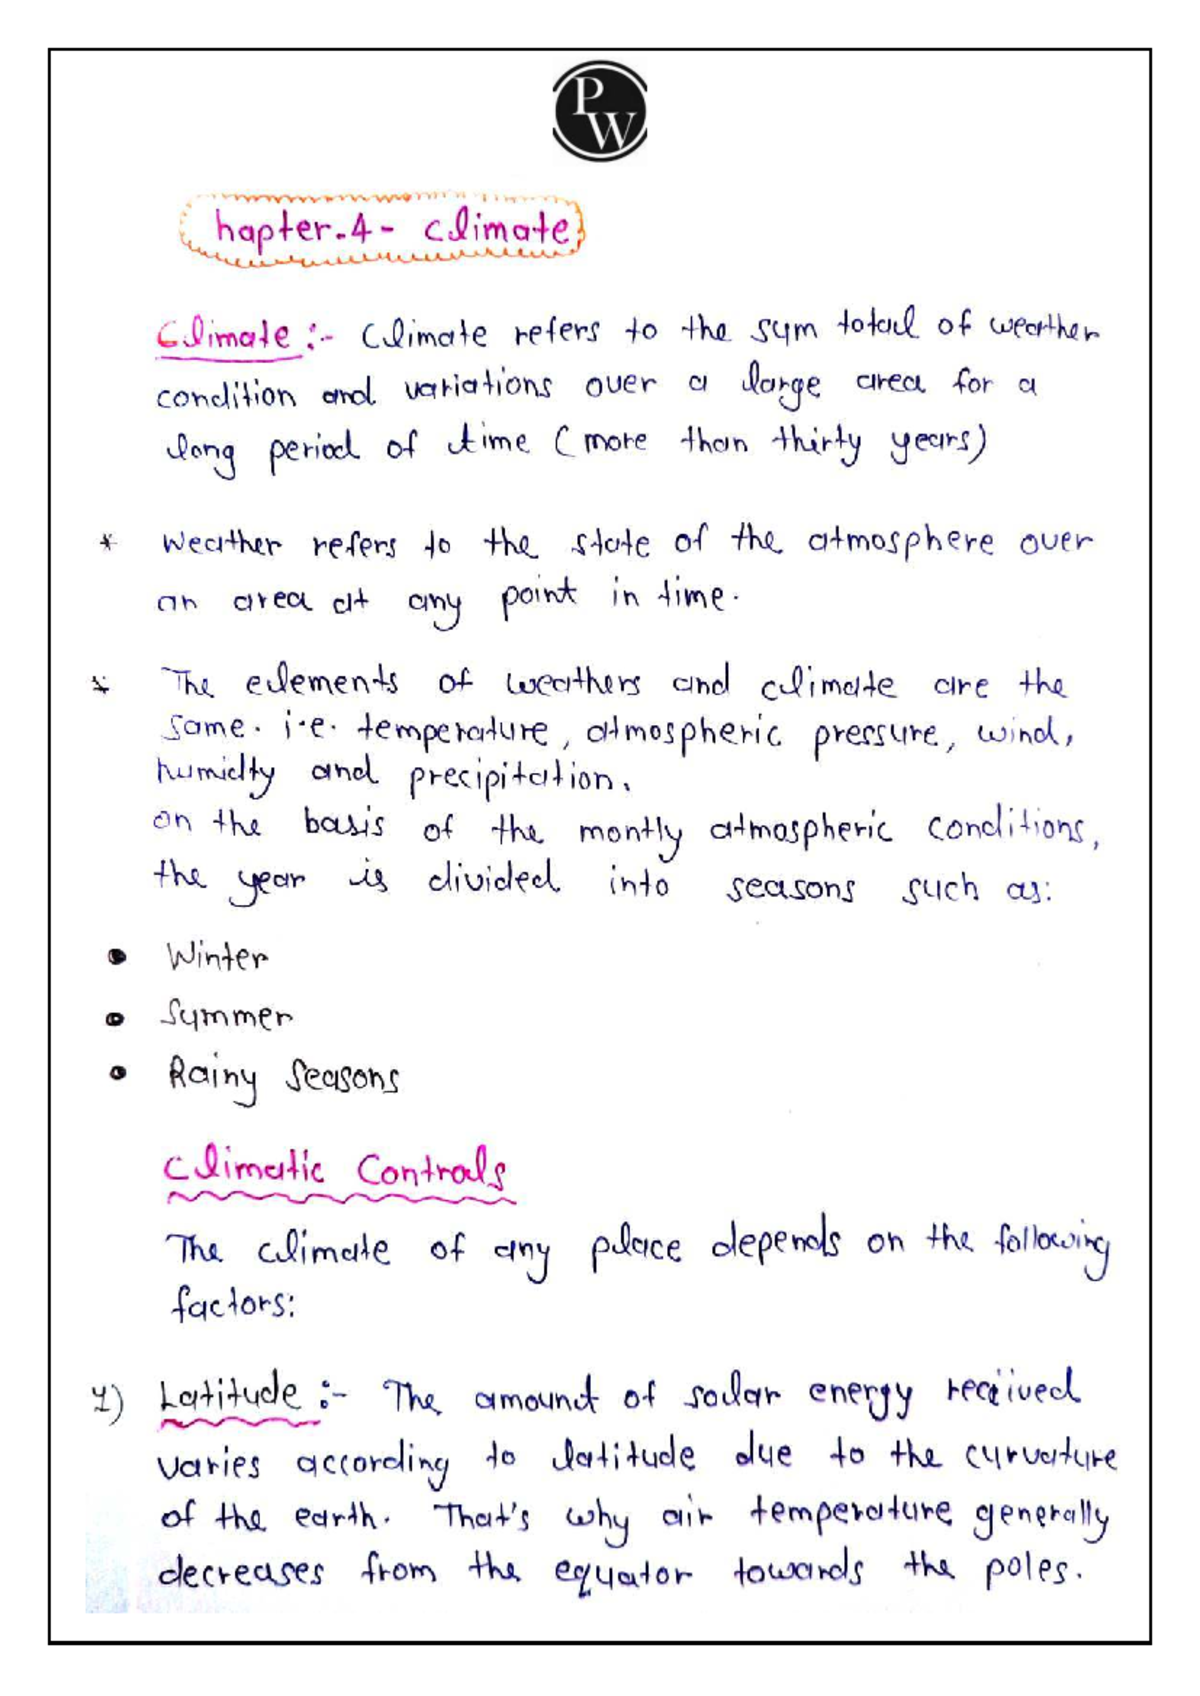 PW
hapter.4- Climate
Climate :- Climate refers to the sum total of weather
condition and variations over a large area for a
long period of time (more than thirty years)
* Weather refers to the state of the atmosphere over
an area at any point in time.
* The elements of weathers and climate are the
same. i.e. temperature, atmospheric pressure, wind,
humidity and precipitation.
on the basis of the montly atmospheric conditions,
the year is divided into seasons such as:
• Winter
• Summer
• Rainy Seasons
Climatic Controls
The climate of any place depends on the following
factors:
1) Latitude :- The amount of solar energy received
varies according to latitude due to the curvature
of the earth. That's why air temperature generally
decreases from the equator towards the poles.